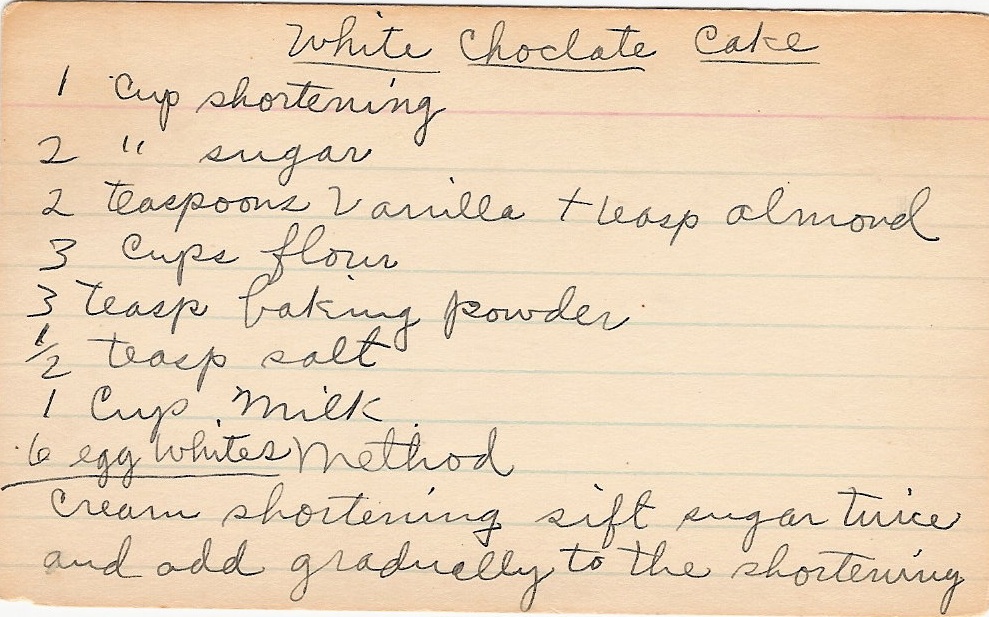 White Choclate Cake
1 Cup shortening
2 " sugar
2 teaspoons Vanilla + teasp almond
3 Cups flour
3 teasp baking powder
1/2 teasp salt
1 Cup Milk
6 egg whites Method
Cream shortening sift sugar twice
and add gradually to the shortening